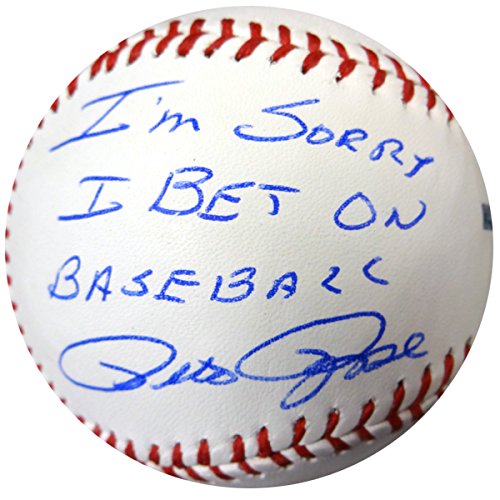 I'm Sorry
I BET ON
BASEBALL
Pete Rose